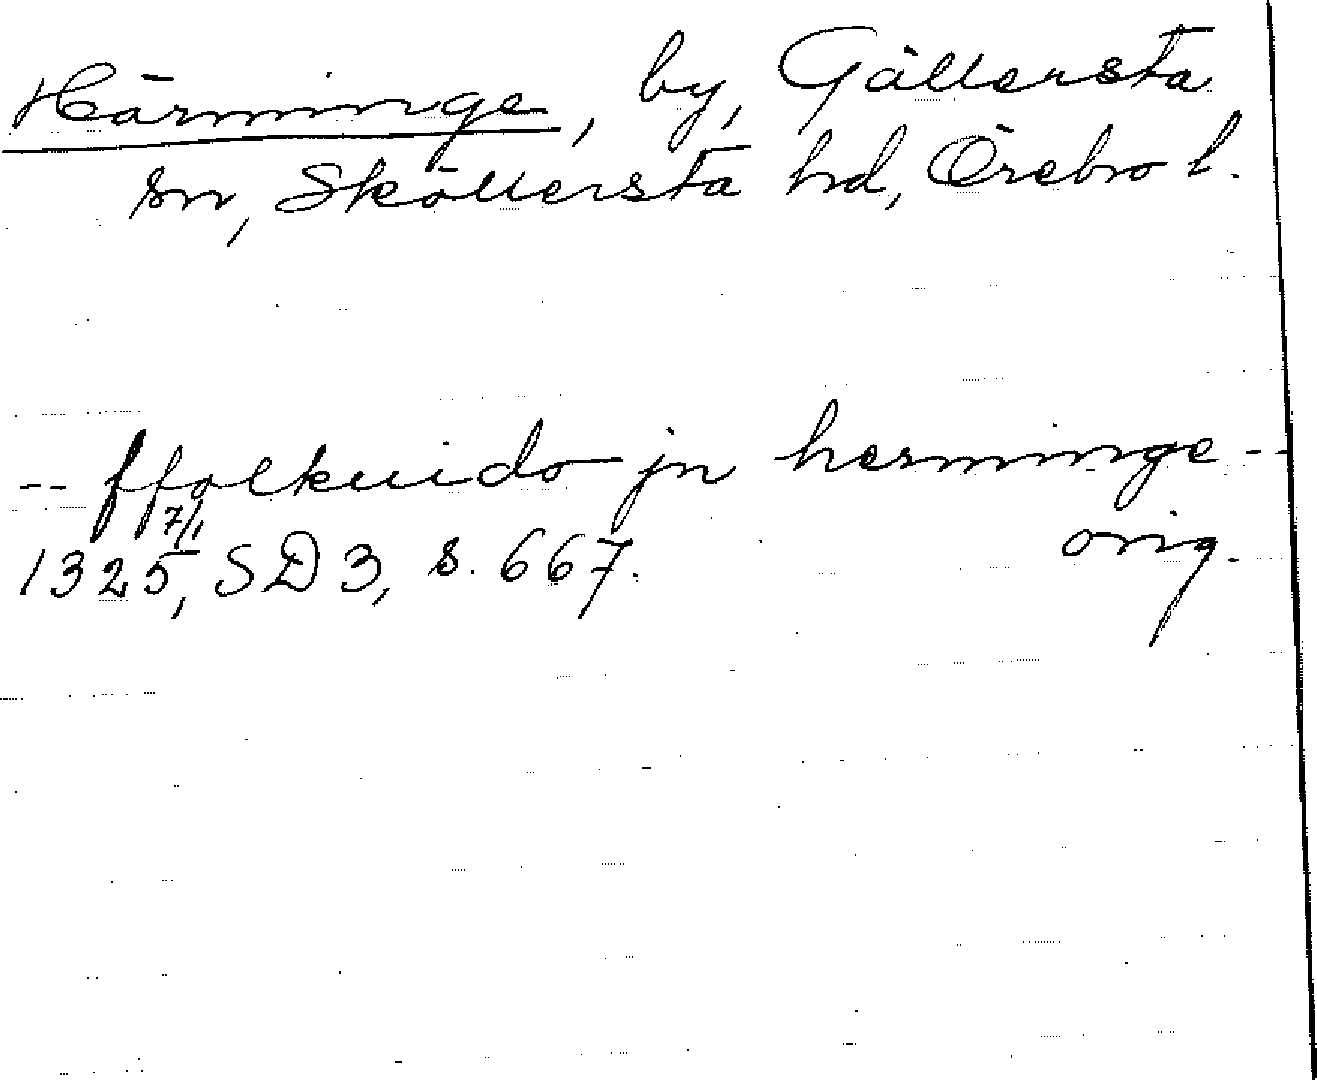 Härminge, by, Gällersta
sn, Sköllersta hd, Örebro l.
-- ffolkuido jn herminge --
1325 7/1, SD 3, s. 667. orig.